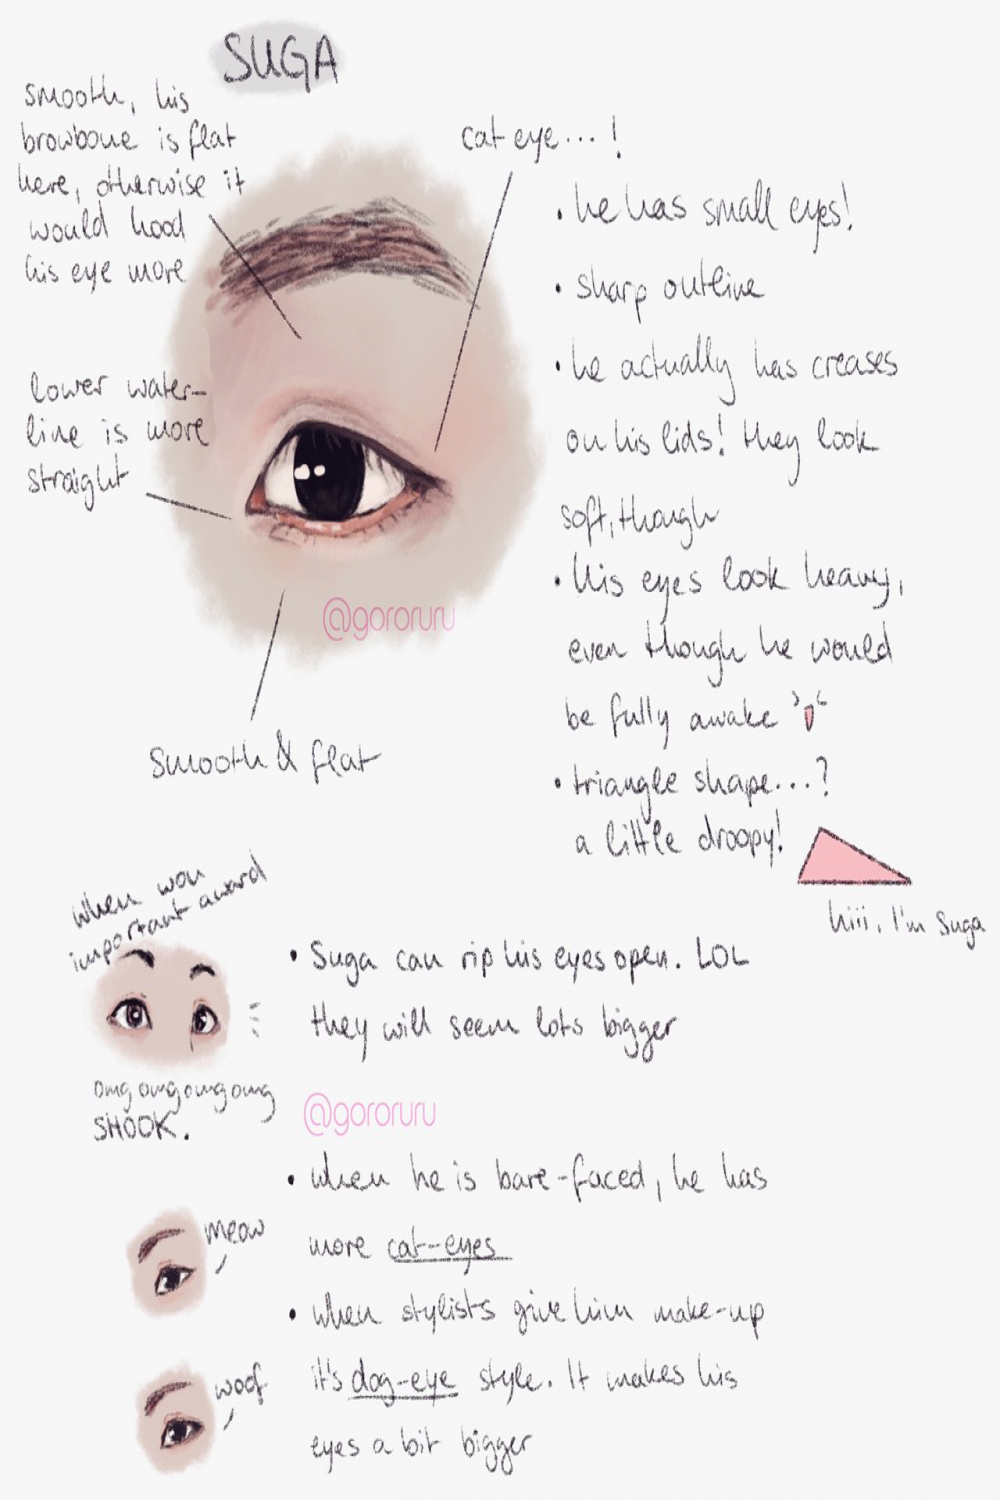 SUGA
smooth, his
browbone is flat
here, otherwise it
would hood
his eye more
cat eye...!
lower water-
line is more
straight
@gororuru
smooth & flat
• he has small eyes!
• sharp outline
• he actually has creases
on his lids! they look
soft, though
• his eyes look heavy,
even though he would
be fully awake
• triangle shape...?
a little droopy!
hiii, I'm Suga
when won
important award
omg omg omg omg
SHOOK.
• Suga can rip his eyes open. LOL
they will seem lots bigger
@gororuru
• when he is bare-faced, he has
more cat-eyes
meow
• when stylists give him make-up
it's dog-eye style. It makes his
eyes a bit bigger
woof